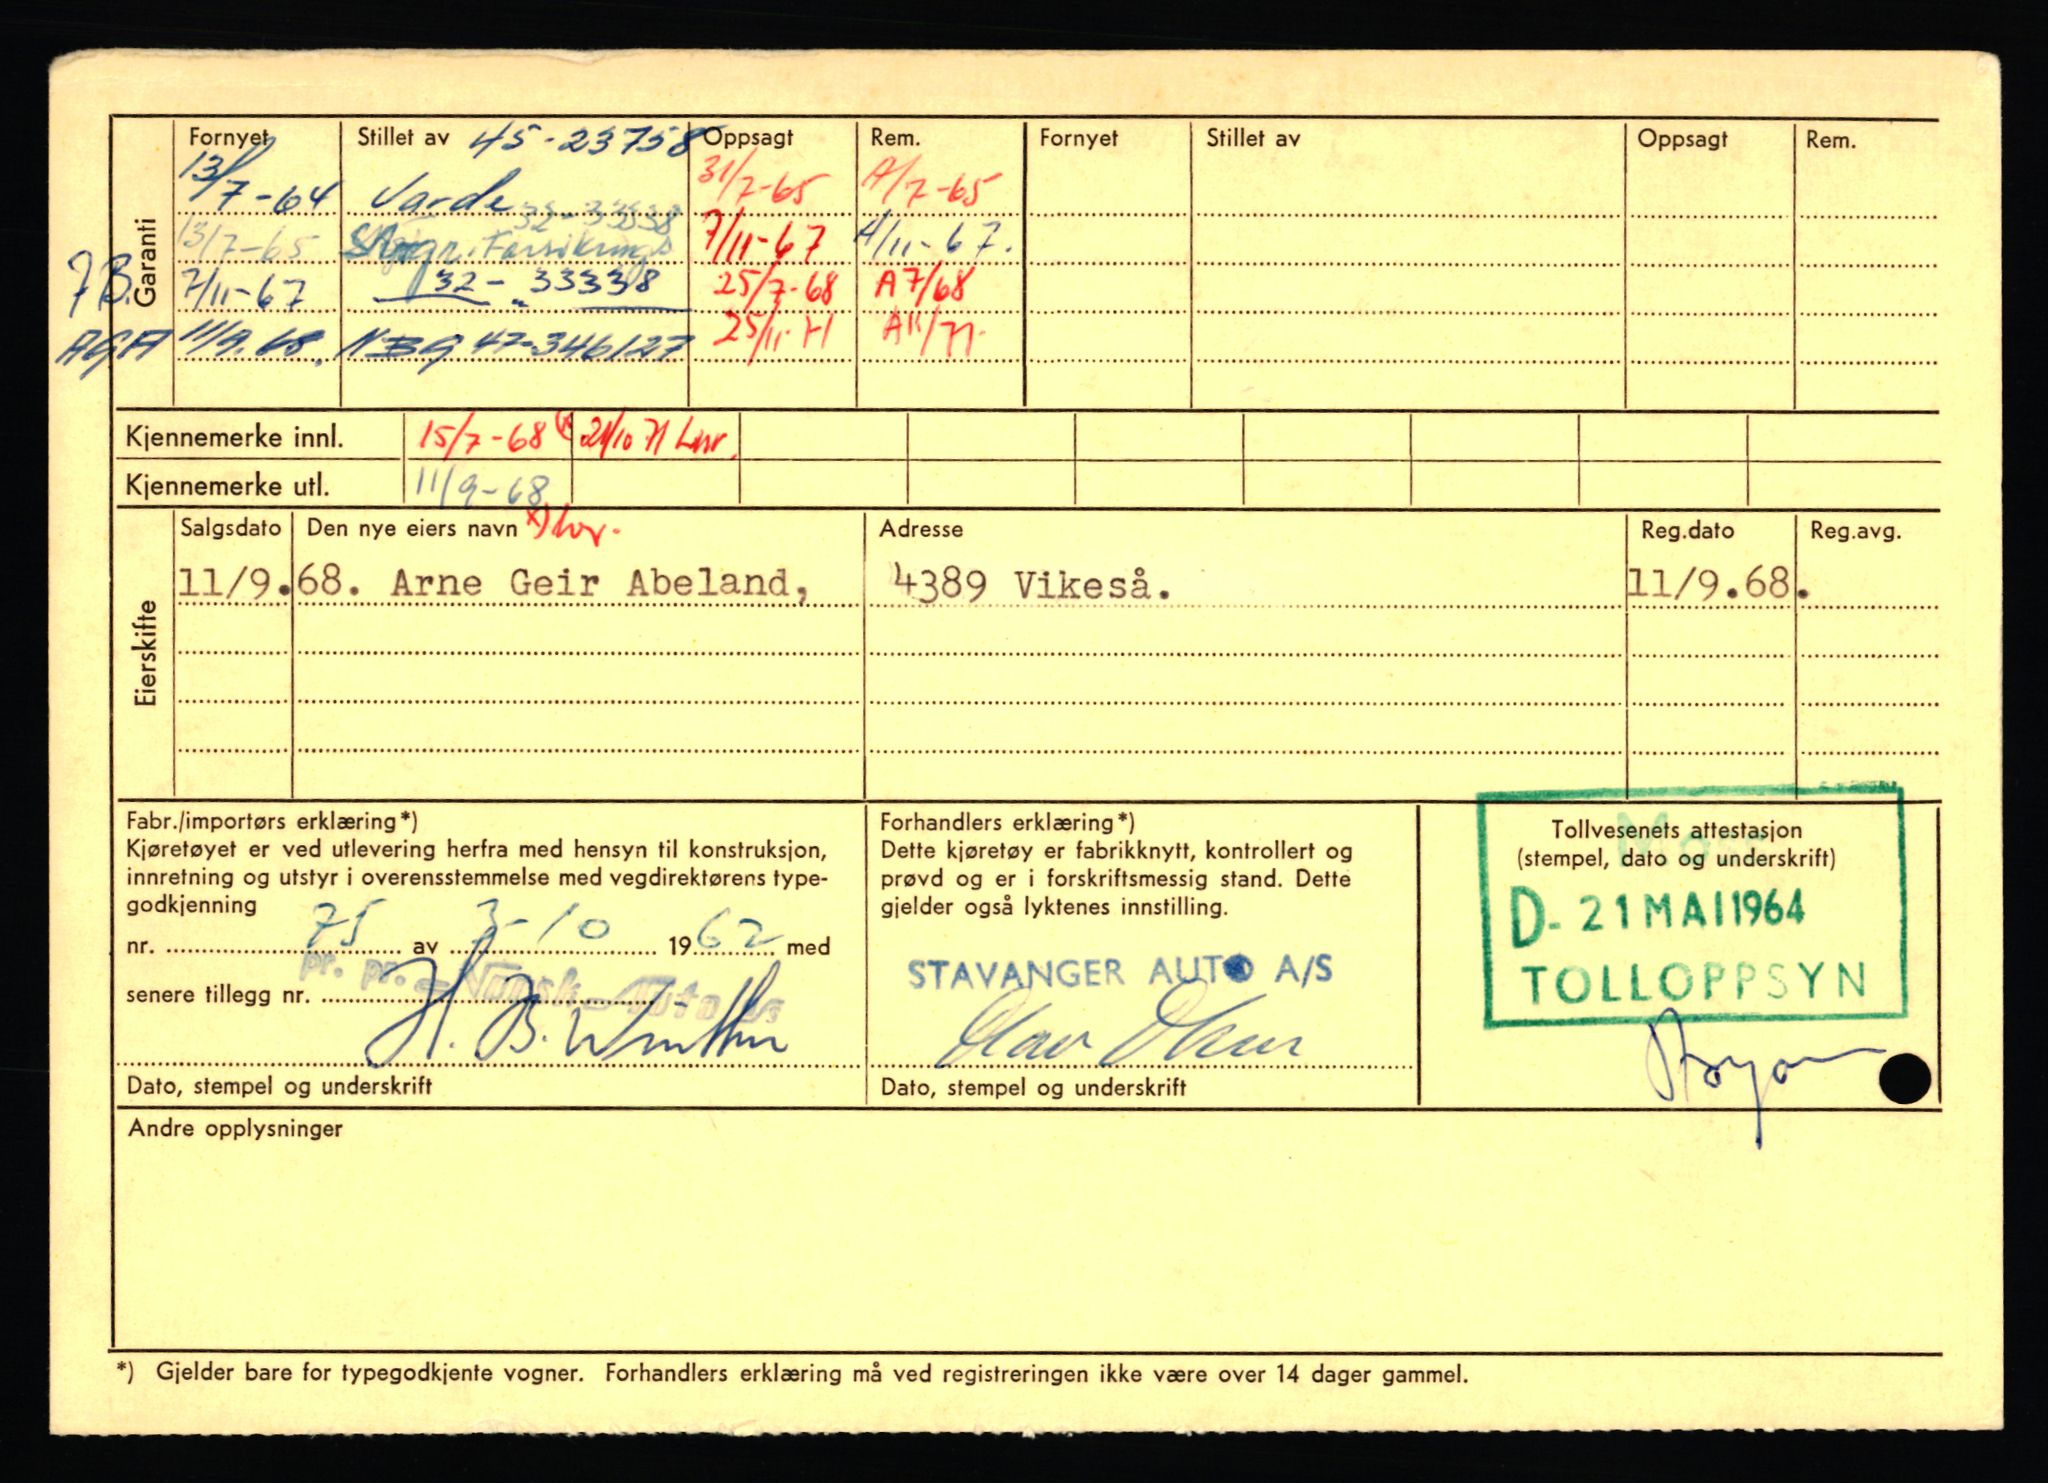 Garanti
Fornyet Stillet av 45-23758 Oppsagt Rem. Fornyet Stillet av Oppsagt Rem.
13/7-64 Varde 31/7-65 A/7-65
32-33338
13/7-65 Forsikrings 7/11-67 A/11-67.
7B. 7/11-67 32-33338 25/7-68 A 7/68
AGA 11/9.68. NBG 47-346127 25/11-71 A11/71.
Kjennemerke innl. 15/7-68 x) 21/10 71
Kjennemerke utl. 11/9-68
Eierskifte
Salgsdato Den nye eiers navn x) Adresse Reg.dato Reg.avg.
11/9.68. Arne Geir Abeland, 4389 Vikeså. 11/9.68.
Fabr./importørs erklæring*)
Kjøretøyet er ved utlevering herfra med hensyn til konstruksjon,
innretning og utstyr i overensstemmelse med vegdirektørens type-
godkjenning
nr. 75 av 3-10 1962 med
pr. pr. Norsk Auto A/S
senere tillegg nr.
H. B. Winther
Dato, stempel og underskrift
Forhandlers erklæring*)
Dette kjøretøy er fabrikknytt, kontrollert og
prøvd og er i forskriftsmessig stand. Dette
gjelder også lyktenes innstilling.
STAVANGER AUTO A/S
Olav Olsen
Dato, stempel og underskrift
Tollvesenets attestasjon
(stempel, dato og underskrift)
D- 21 MAI 1964
TOLLOPPSYN
Andre opplysninger
*) Gjelder bare for typegodkjente vogner. Forhandlers erklæring må ved registreringen ikke være over 14 dager gammel.